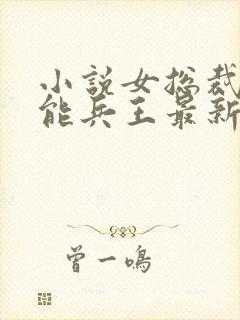 小说女总裁
能兵王最新
曾一鸣